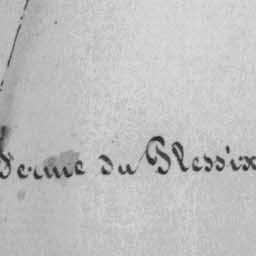 Ferme du Plessix